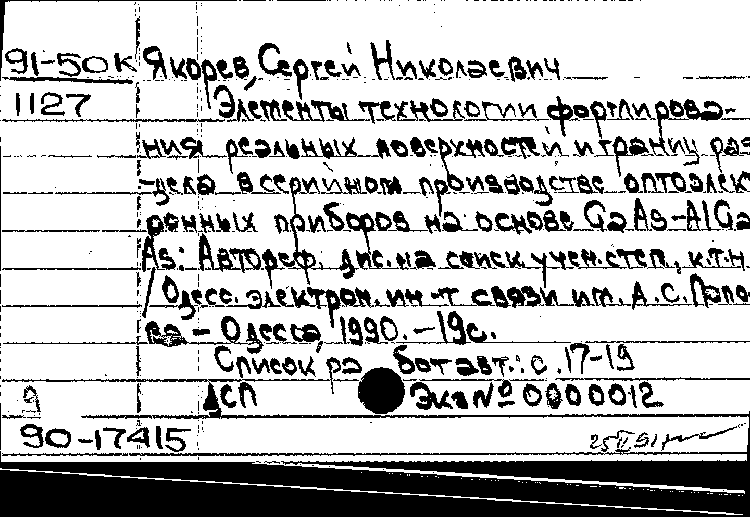 91-50К Якорев, Сергей Николаевич
1127 Элементы технологии формирова-
ния реальных поверхностей и границ раз
-дела в серийном производстве оптоэлект
ронных приборов на основе GaAs-AlGa
As: Автореф. дис. на соиск. учен. степ., к.т.н
/ Одесс. электрон. ин-т связи им. А.С. Попо
ва - Одесса, 1990. - 19с.
Список ра бот авт.: с. 17-19
9 ДСП Экз № 0000012
90-17415